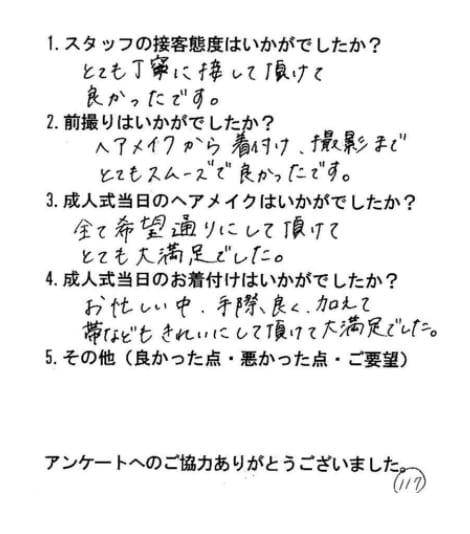 1. スタッフの接客態度はいかがでしたか？
とても丁寧に接して頂けて
良かったです。
2. 前撮りはいかがでしたか？
ヘアメイクから着付け、撮影まで
とてもスムーズで良かったです。
3. 成人式当日のヘアメイクはいかがでしたか？
全て希望通りにして頂けて
とても大満足でした。
4. 成人式当日のお着付けはいかがでしたか？
お忙しい中、手際良く、加えて
帯などもきれいにして頂けて大満足でした。
5. その他（良かった点・悪かった点・ご要望）
アンケートへのご協力ありがとうございました。
117